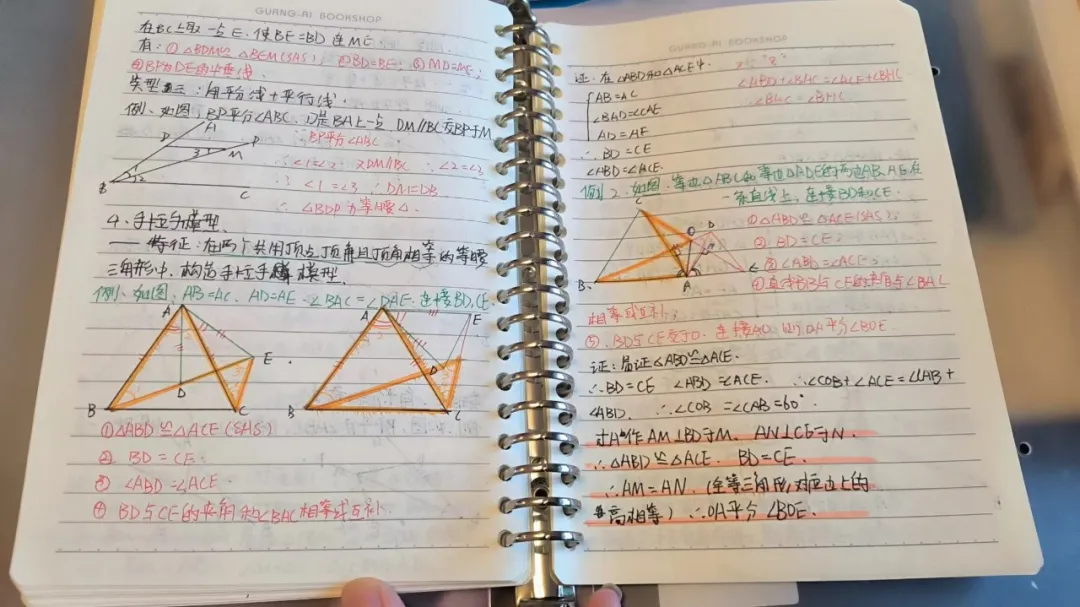 GUANG-RI BOOKSHOP
在BC上取一点E，使BE=BD 连ME.
有：①△BDM≌△BEM(SAS)；②BD=BE；③MD=ME；
④BP为DE的中垂线.
类型三：角平分线+平行线.
例、如图，BP平分∠ABC、D是BA上一点 DM//BC交BP于M
∵BP平分∠ABC
∴∠1=∠2. 又DM//BC ∴∠2=∠3
∴∠1=∠3 ∴DM=DB
∴△BDP为等腰△.
A
D P
3 M
1
2
B C
4、手拉手模型.
——特征：在两个共用顶点顶角且顶角相等的等腰
三角形中，构造手拉手模型.
例、如图，AB=AC，AD=AE，∠BAC=∠DAE，连接BD，CE
A A E
E
D D
B C B C
①△ABD≌△ACE(SAS)
② BD=CE.
③ ∠ABD=∠ACE
④ BD与CE的夹角和∠BAC相等或互补.
GUANG-RI BOOKSHOP
证：在△ABD和△ACE中.
AB=AC
∠BAD=∠CAE
AD=AE
∴BD=CE
∠ABD=∠ACE.
"8"
∠ABD+∠BAC=∠ACE+∠BHC
例2、如图，等边△ABC和等边△ADE的两边AB、AE在
一条直线上，连接BD和CE.
C
O D
B A
①△ABD≌△ACE(SAS)；
② BD=CE；
③ ∠ABD=∠ACE；
④直线BD与CE的夹角与∠BAC
相等或互补；
⑤、BD与CE交于O，连接AO，则OA平分∠BOE.
证：易证△ABD≌△ACE.
∴BD=CE ∠ABD=∠ACE. ∴∠COB+∠ACE=∠CAB+
∠ABD. ∴∠COB=∠CAB=60°
过A作AM⊥BD于M、AN⊥CE于N.
∴△ABD≌△ACE. BD=CE.
∴AM=AN.（全等三角形，对应边上的
高相等）∴OA平分∠BOE.